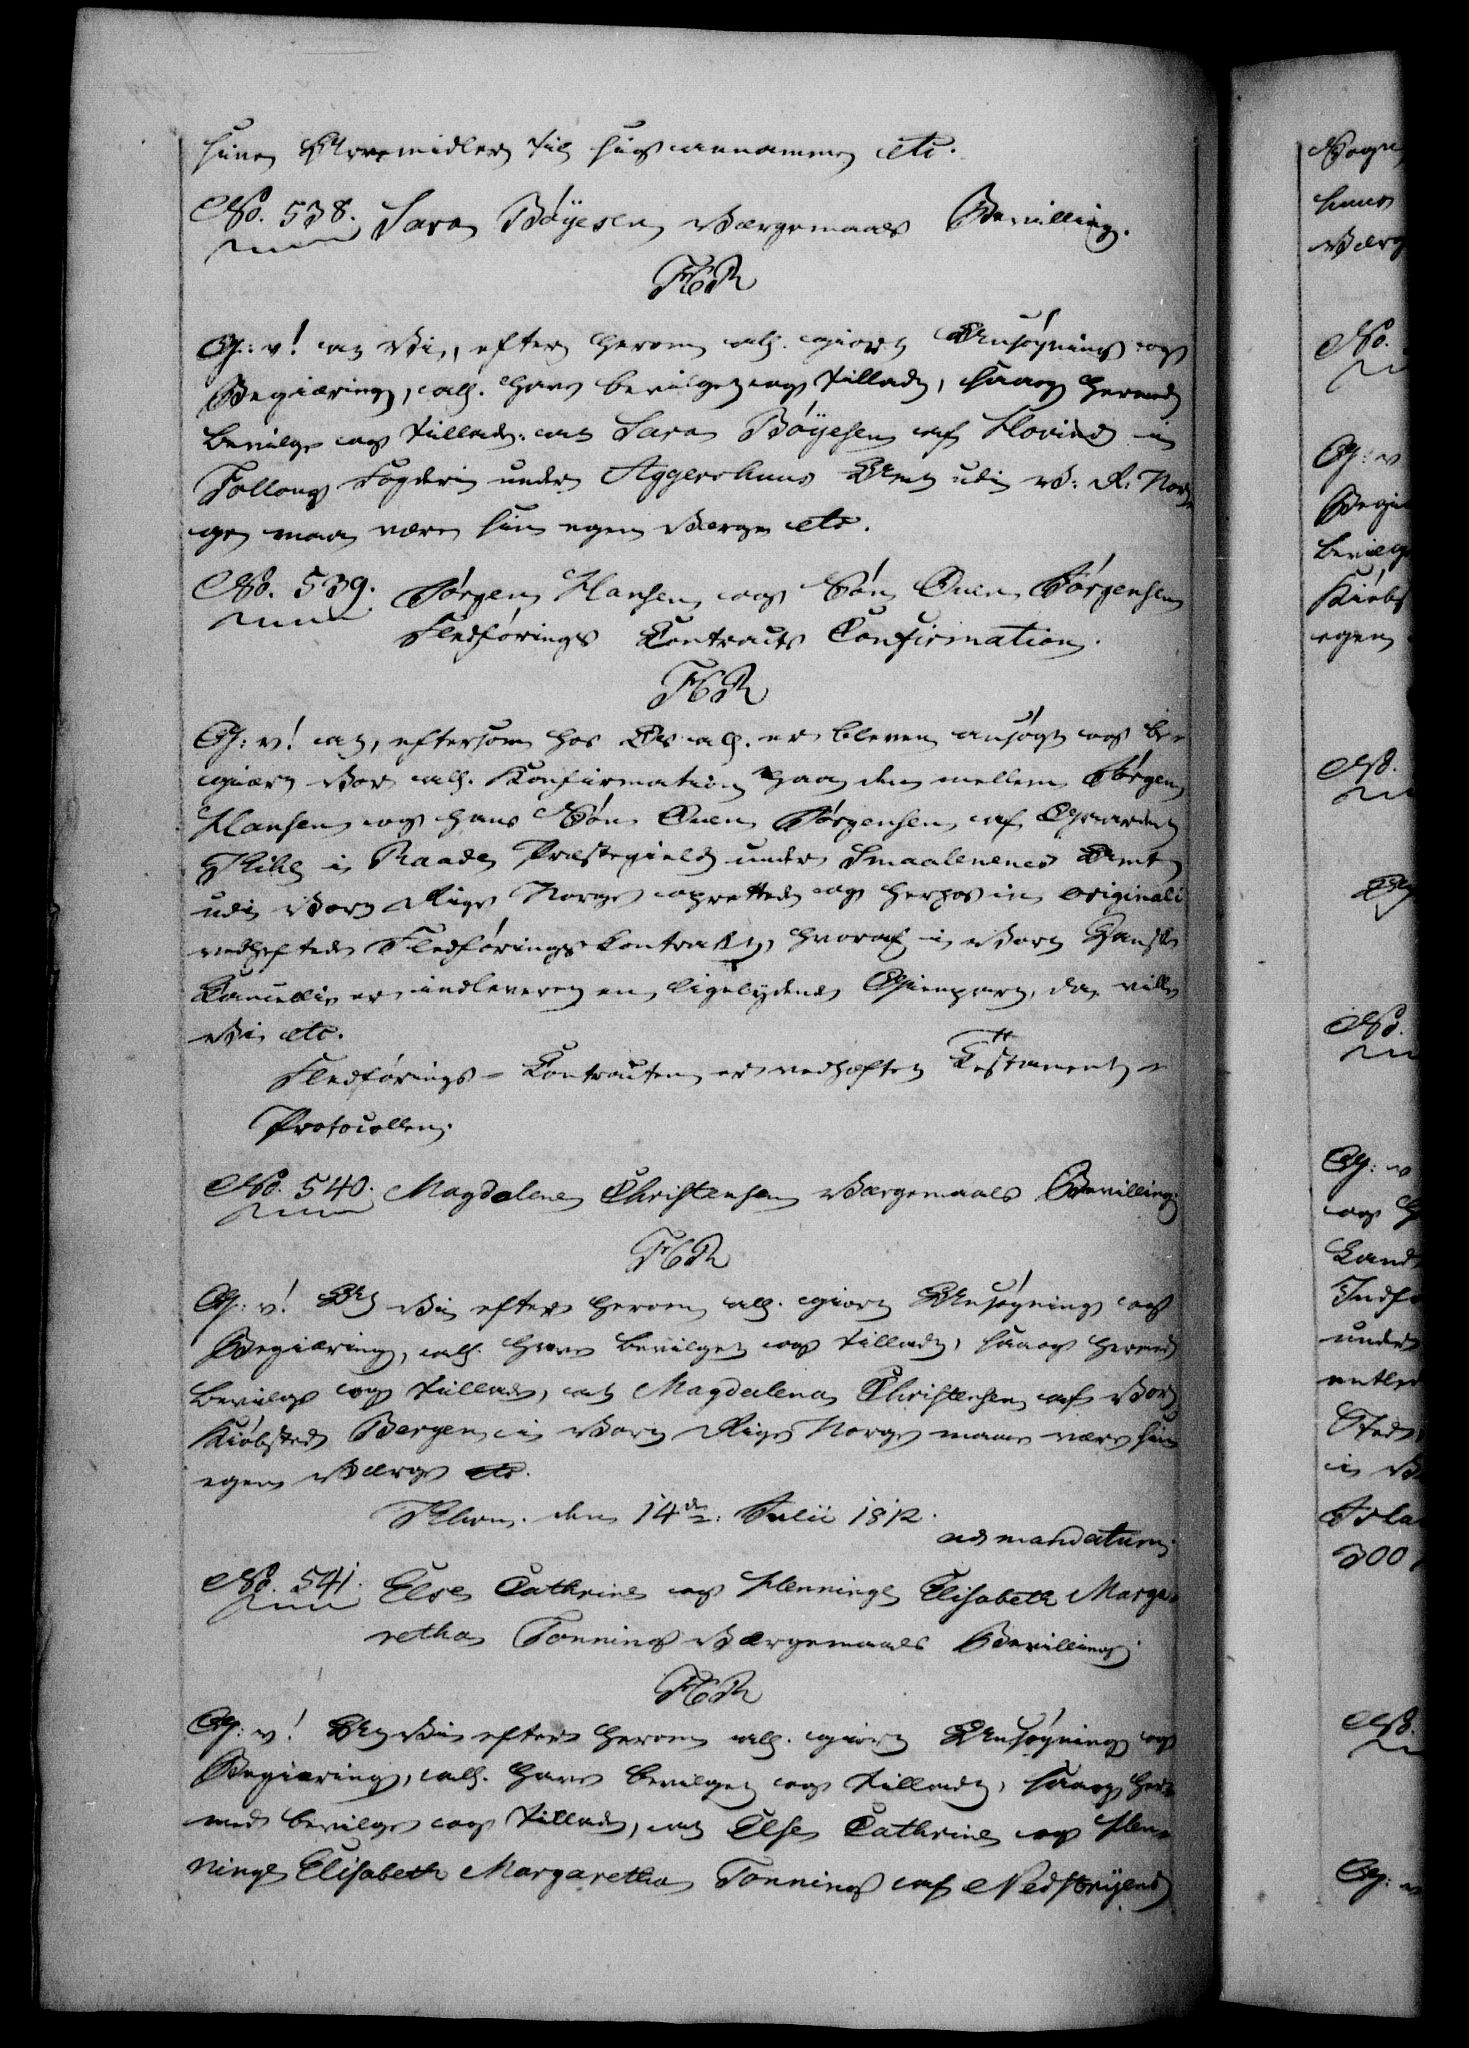 sine Arvemidler til sig annamme etc.
No. 538. Sara Böyesen Værgemaals Bevilling.
F6R
G: v! at Vi, efter herom all. giort Ansøgning og
Begiæring, all. have bevilget og tilladt, saa og hermed
bevilge og tillade, at Sara Böyesen af i
Folloug Fogderie under Aggershuus Amt udi V: R: Nor-
ge maa være sin egen Værge etc.
No. 539. Jørgen Hansen og Søn Ouen Jørgensen
Fledførings Contracts Confirmation.
F6R
G: v! at, eftersom hos Os all. er bleven ansøgt og be-
giært Vor all. Konfirmation paa den mellem Jørgen
Hansen og hans Søn Ouen Jørgensen af
i Raade Præstegield under Smaalenenes Amt
udi Vort Rige Norge oprettede og herhos in originali
vedheftede Fledførings Contract, hvoraf i Vort Danske
Cancellie er indleveret en ligelydende Gienpart, da ville
Vi etc.
Fledførings-Contracten er vedheftet Testament-
Protocollen.
No. 540. Magdalena Christensen Værgemaals Bevilling.
F6R
G: v! At Vi efter herom all. giort Ansøgning og
Begiæring, all. have bevilget og tilladt, saa og hermed
bevilge og tillade, at Magdalena Christensen af Vor
Kiøbsted Bergen i Vort Rige Norge maa være sin
egen Værge etc.
Khvn. den 14de Julii 1812.
ad mandatum.
No. 541. Else Cathrine og Henninge Elisabeth Marga-
retha Tonning Værgemaals Bevilling.
F6R
G: v! At Vi efter herom all. giort Ansøgning og
Begiæring, all. have bevilget og tilladt, saa og her-
med bevilge og tillade, at Else Cathrine og Hen-
ninge Elisabeth Margaretha Tonning af Nedstryens